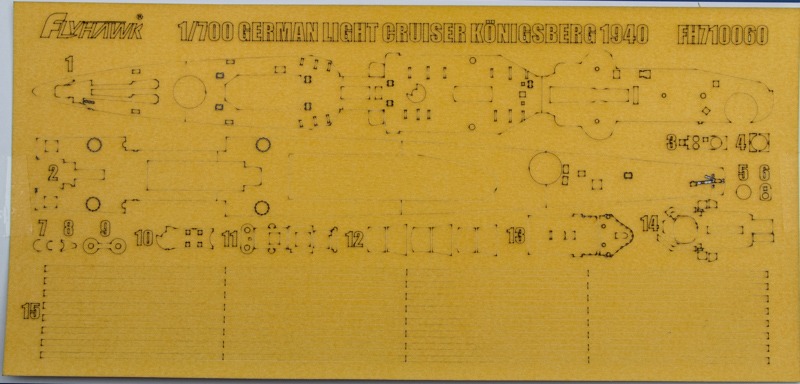 FLYHAWK® 1/700 GERMAN LIGHT CRUISER KÖNIGSBERG 1940 FH710060
1
3 4
2 5 6
7 8 9 10 11 12 13 14
15